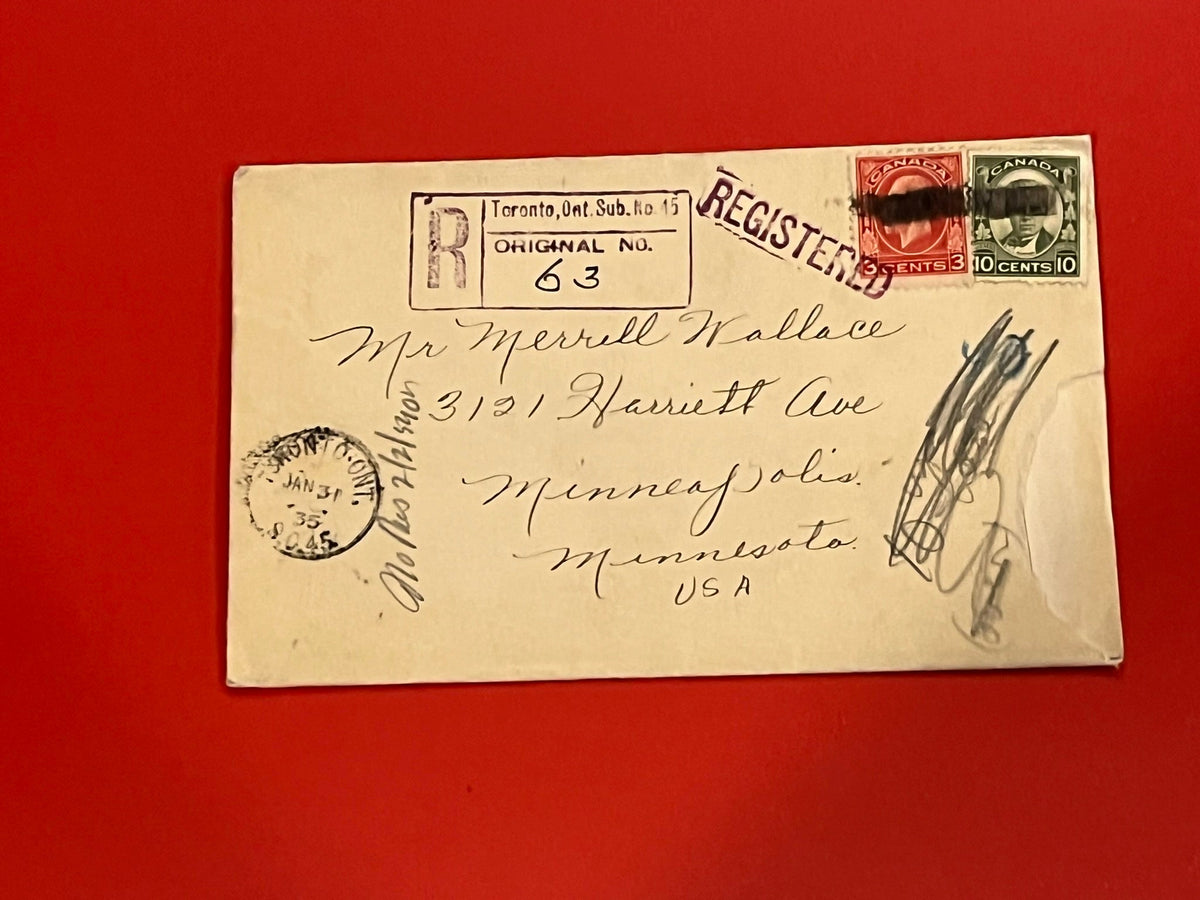 R
Toronto, Ont. Sub. No. 45
ORIGINAL NO.
63
REGISTERED
CANADA
3 CENTS 3
CANADA
10 CENTS 10
Mr Merrill Wallace
3121 Harriett Ave
Minneapolis.
Minnesota.
USA
TORONTO·ONT.
JAN 31
35
S.O.45
No Res 2/2/